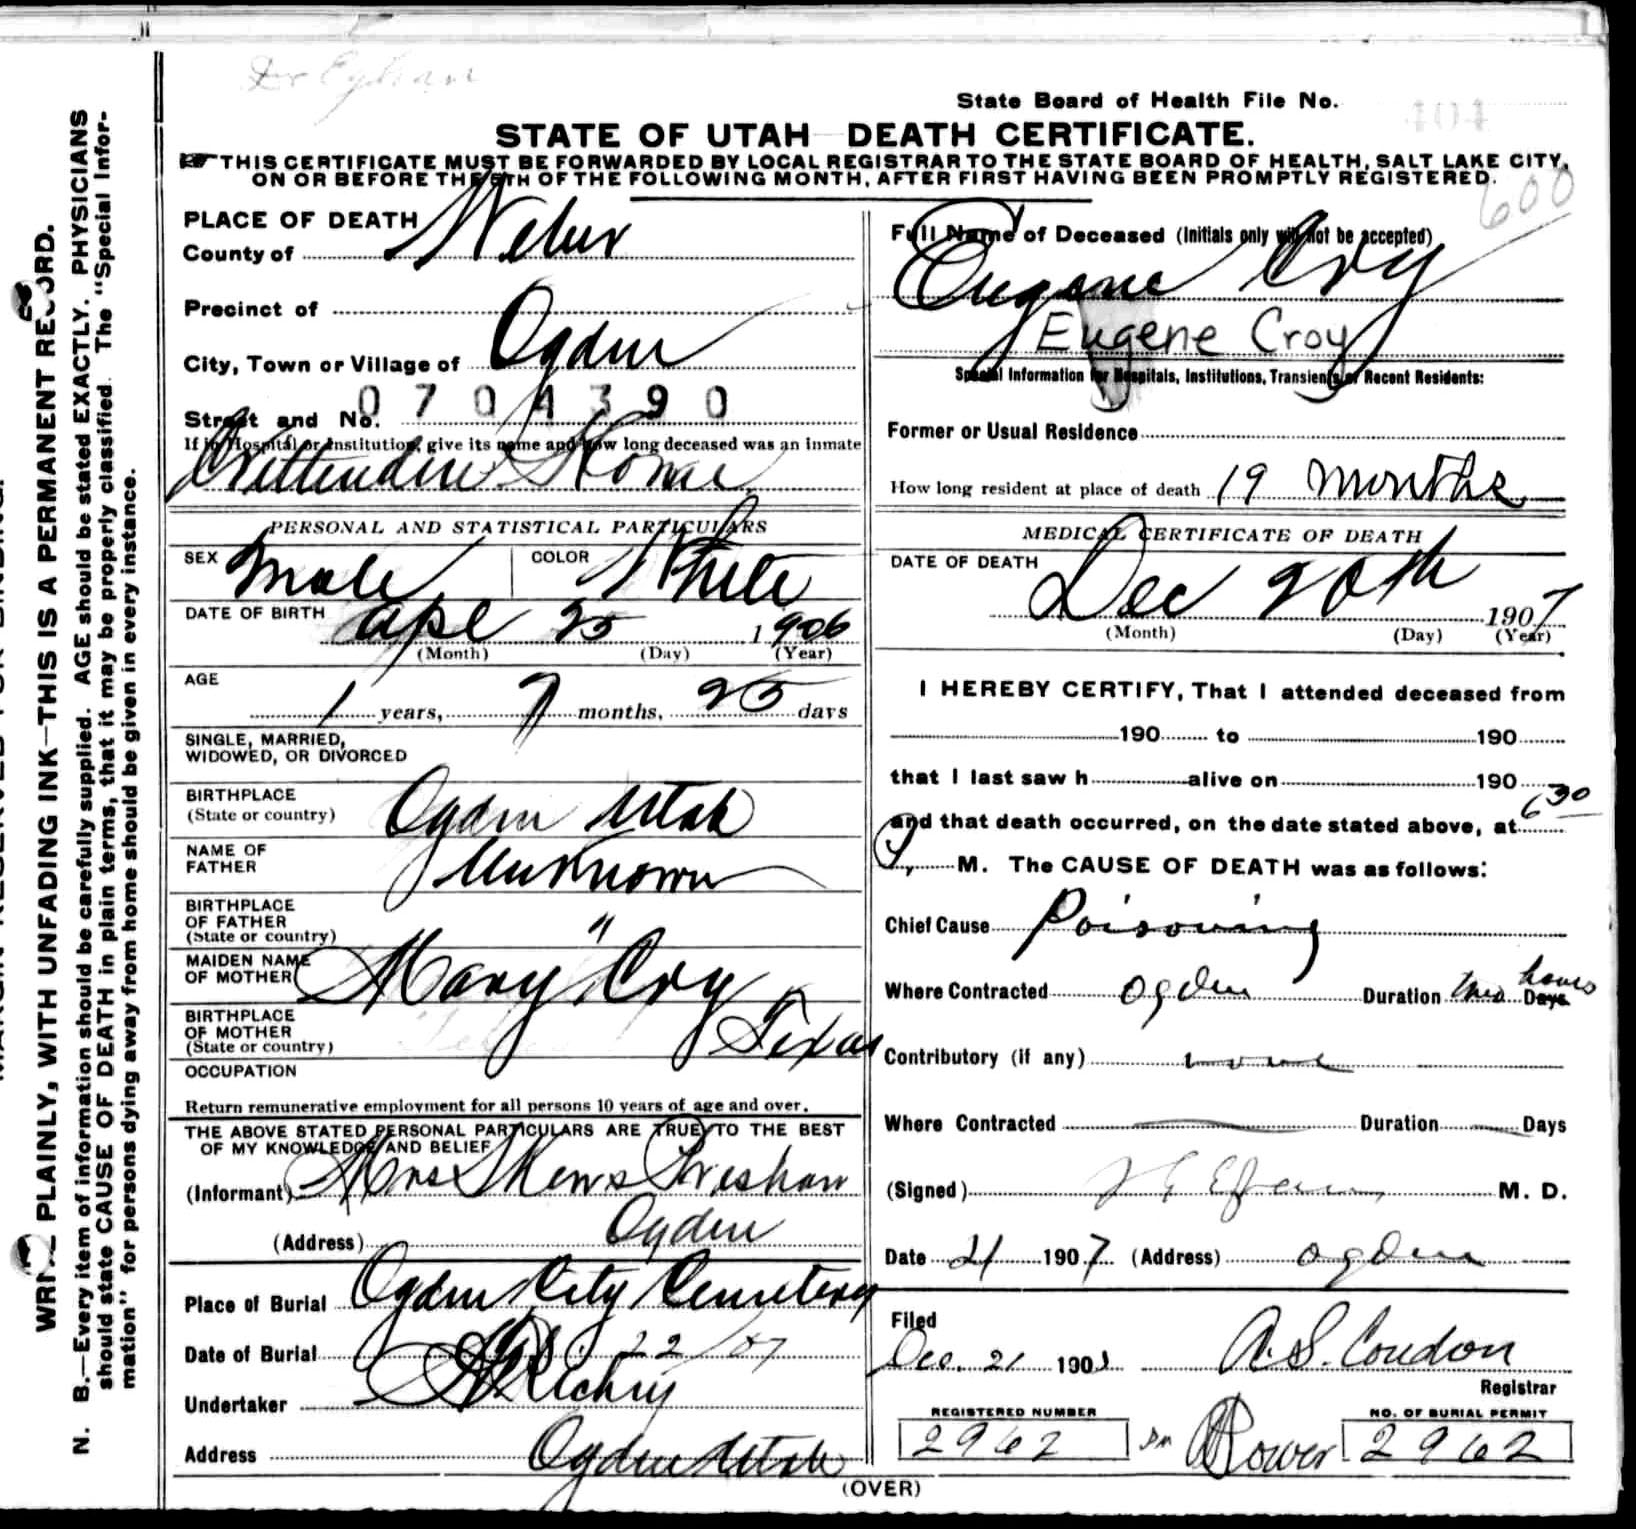 State Board of Health File No. 404
STATE OF UTAH DEATH CERTIFICATE.
THIS CERTIFICATE MUST BE FORWARDED BY LOCAL REGISTRAR TO THE STATE BOARD OF HEALTH, SALT LAKE CITY,
ON OR BEFORE THE 5TH OF THE FOLLOWING MONTH, AFTER FIRST HAVING BEEN PROMPTLY REGISTERED.
600
WRITE PLAINLY, WITH UNFADING INK—THIS IS A PERMANENT RECORD.
N. B.—Every item of information should be carefully supplied. AGE should be stated EXACTLY. PHYSICIANS
should state CAUSE OF DEATH in plain terms, that it may be properly classified. The "Special Infor-
mation" for persons dying away from home should be given in every instance.
PLACE OF DEATH
County of Weber
Precinct of
City, Town or Village of Ogden
0704390
Street and No.
If in Hospital or Institution, give its name and how long deceased was an inmate
Crittenden Home
PERSONAL AND STATISTICAL PARTICULARS
SEX Male COLOR White
DATE OF BIRTH Apl 25 1906
(Month) (Day) (Year)
AGE
1 years, 7 months, 25 days
SINGLE, MARRIED,
WIDOWED, OR DIVORCED
BIRTHPLACE
(State or country) Ogden Utah
NAME OF
FATHER Unknown
BIRTHPLACE
OF FATHER
(State or country) "
MAIDEN NAME
OF MOTHER Mary Cry
BIRTHPLACE
OF MOTHER
(State or country) Texas
OCCUPATION
Return remunerative employment for all persons 10 years of age and over.
THE ABOVE STATED PERSONAL PARTICULARS ARE TRUE TO THE BEST
OF MY KNOWLEDGE AND BELIEF
(Informant) Mrs
(Address) Ogden
Place of Burial Ogden City Cemetery
Date of Burial 22/07
Undertaker
Address Ogden Utah
Full Name of Deceased (Initials only will not be accepted)
Eugene Cry
Eugene Croy
Special Information for Hospitals, Institutions, Transients or Recent Residents:
Former or Usual Residence
How long resident at place of death 19 months
MEDICAL CERTIFICATE OF DEATH
DATE OF DEATH Dec 20th 1907
(Month) (Day) (Year)
I HEREBY CERTIFY, That I attended deceased from
190 to 190
that I last saw h alive on 190
and that death occurred, on the date stated above, at 6 30
M. The CAUSE OF DEATH was as follows:
Chief Cause Poisoning
Where Contracted Ogden Duration two hours Days
Contributory (if any) none
Where Contracted Duration Days
(Signed) M. D.
Date 21 1907 (Address) Ogden
Filed
Dec. 21 190 A. S. Condon
Registrar
REGISTERED NUMBER
2962
NO. OF BURIAL PERMIT
2962
(OVER)